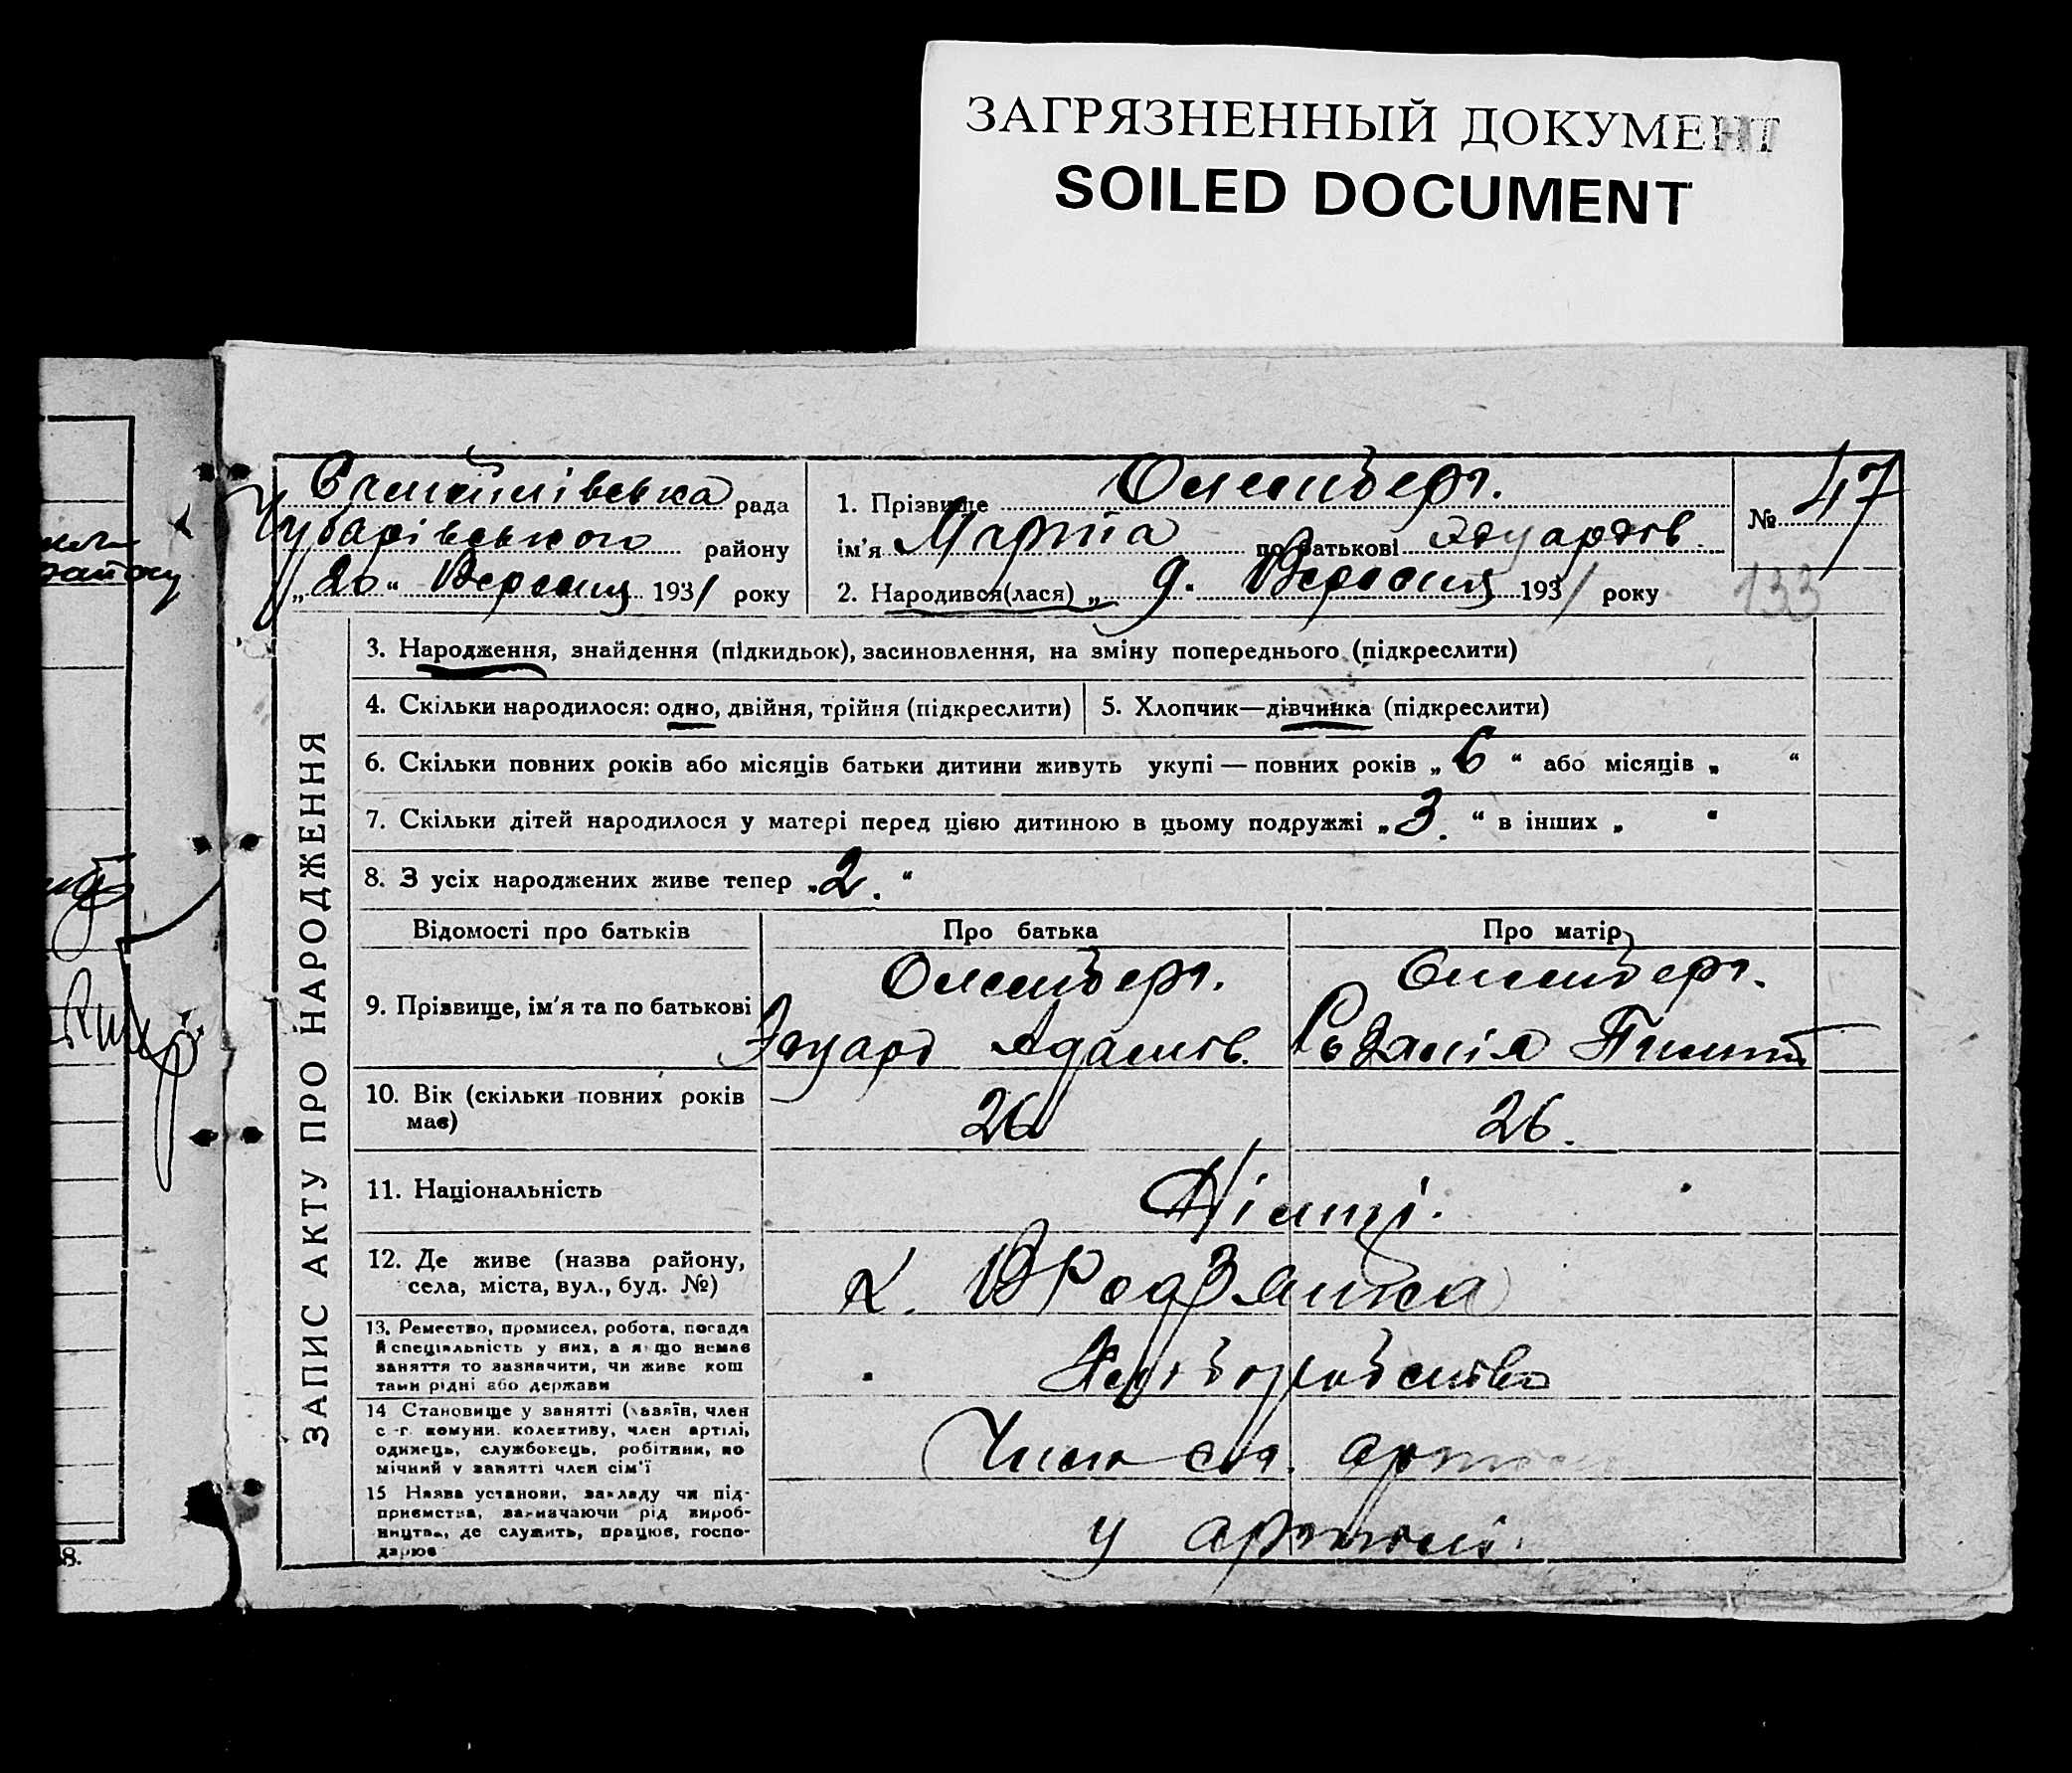 ЗАГРЯЗНЕННЫЙ ДОКУМЕНТ
SOILED DOCUMENT
рада
Чубарівського району
„20“ Вересня 1931 року
1. Прізвище
ім'я Марта по батькові Эдуардов
2. Народився(лася) „9. Вересня 1931 року
№ 47
133
ЗАПИС АКТУ ПРО НАРОДЖЕННЯ
3. Народження, знайдення (підкидьок), засиновлення, на зміну попереднього (підкреслити)
4. Скільки народилося: одно, двійня, трійня (підкреслити)
5. Хлопчик—дівчинка (підкреслити)
6. Скільки повних років або місяців батьки дитини живуть укупі — повних років „6“ або місяців „ “
7. Скільки дітей народилося у матері перед цією дитиною в цьому подружжі „3.“ в інших „ “
8. З усіх народжених живе тепер „2.“
Відомості про батьків
Про батька
Про матір
9. Прізвище, ім'я та по батькові
Эдуард Адамов.
10. Вік (скільки повних років має)
26
26.
11. Національність
Німці.
12. Де живе (назва району,
села, міста, вул., буд. №)
13. Ремество, промисел, робота, посада
й спеціяльність у них, а якщо немає
заняття то зазначити, чи живе кош
тами рідні або держави
Хліборобство
14 Становище у занятті (хазяїн, член
с.-г. комуни, колективу, член артілі,
одинець, службовець, робітник, по
мічний у занятті член сім'ї
Член
15 Назва установи, закладу чи під-
приємства, зазначаючи рід вироб-
ництва, де служить, працює, госпо-
дарює
у артілі.
8.